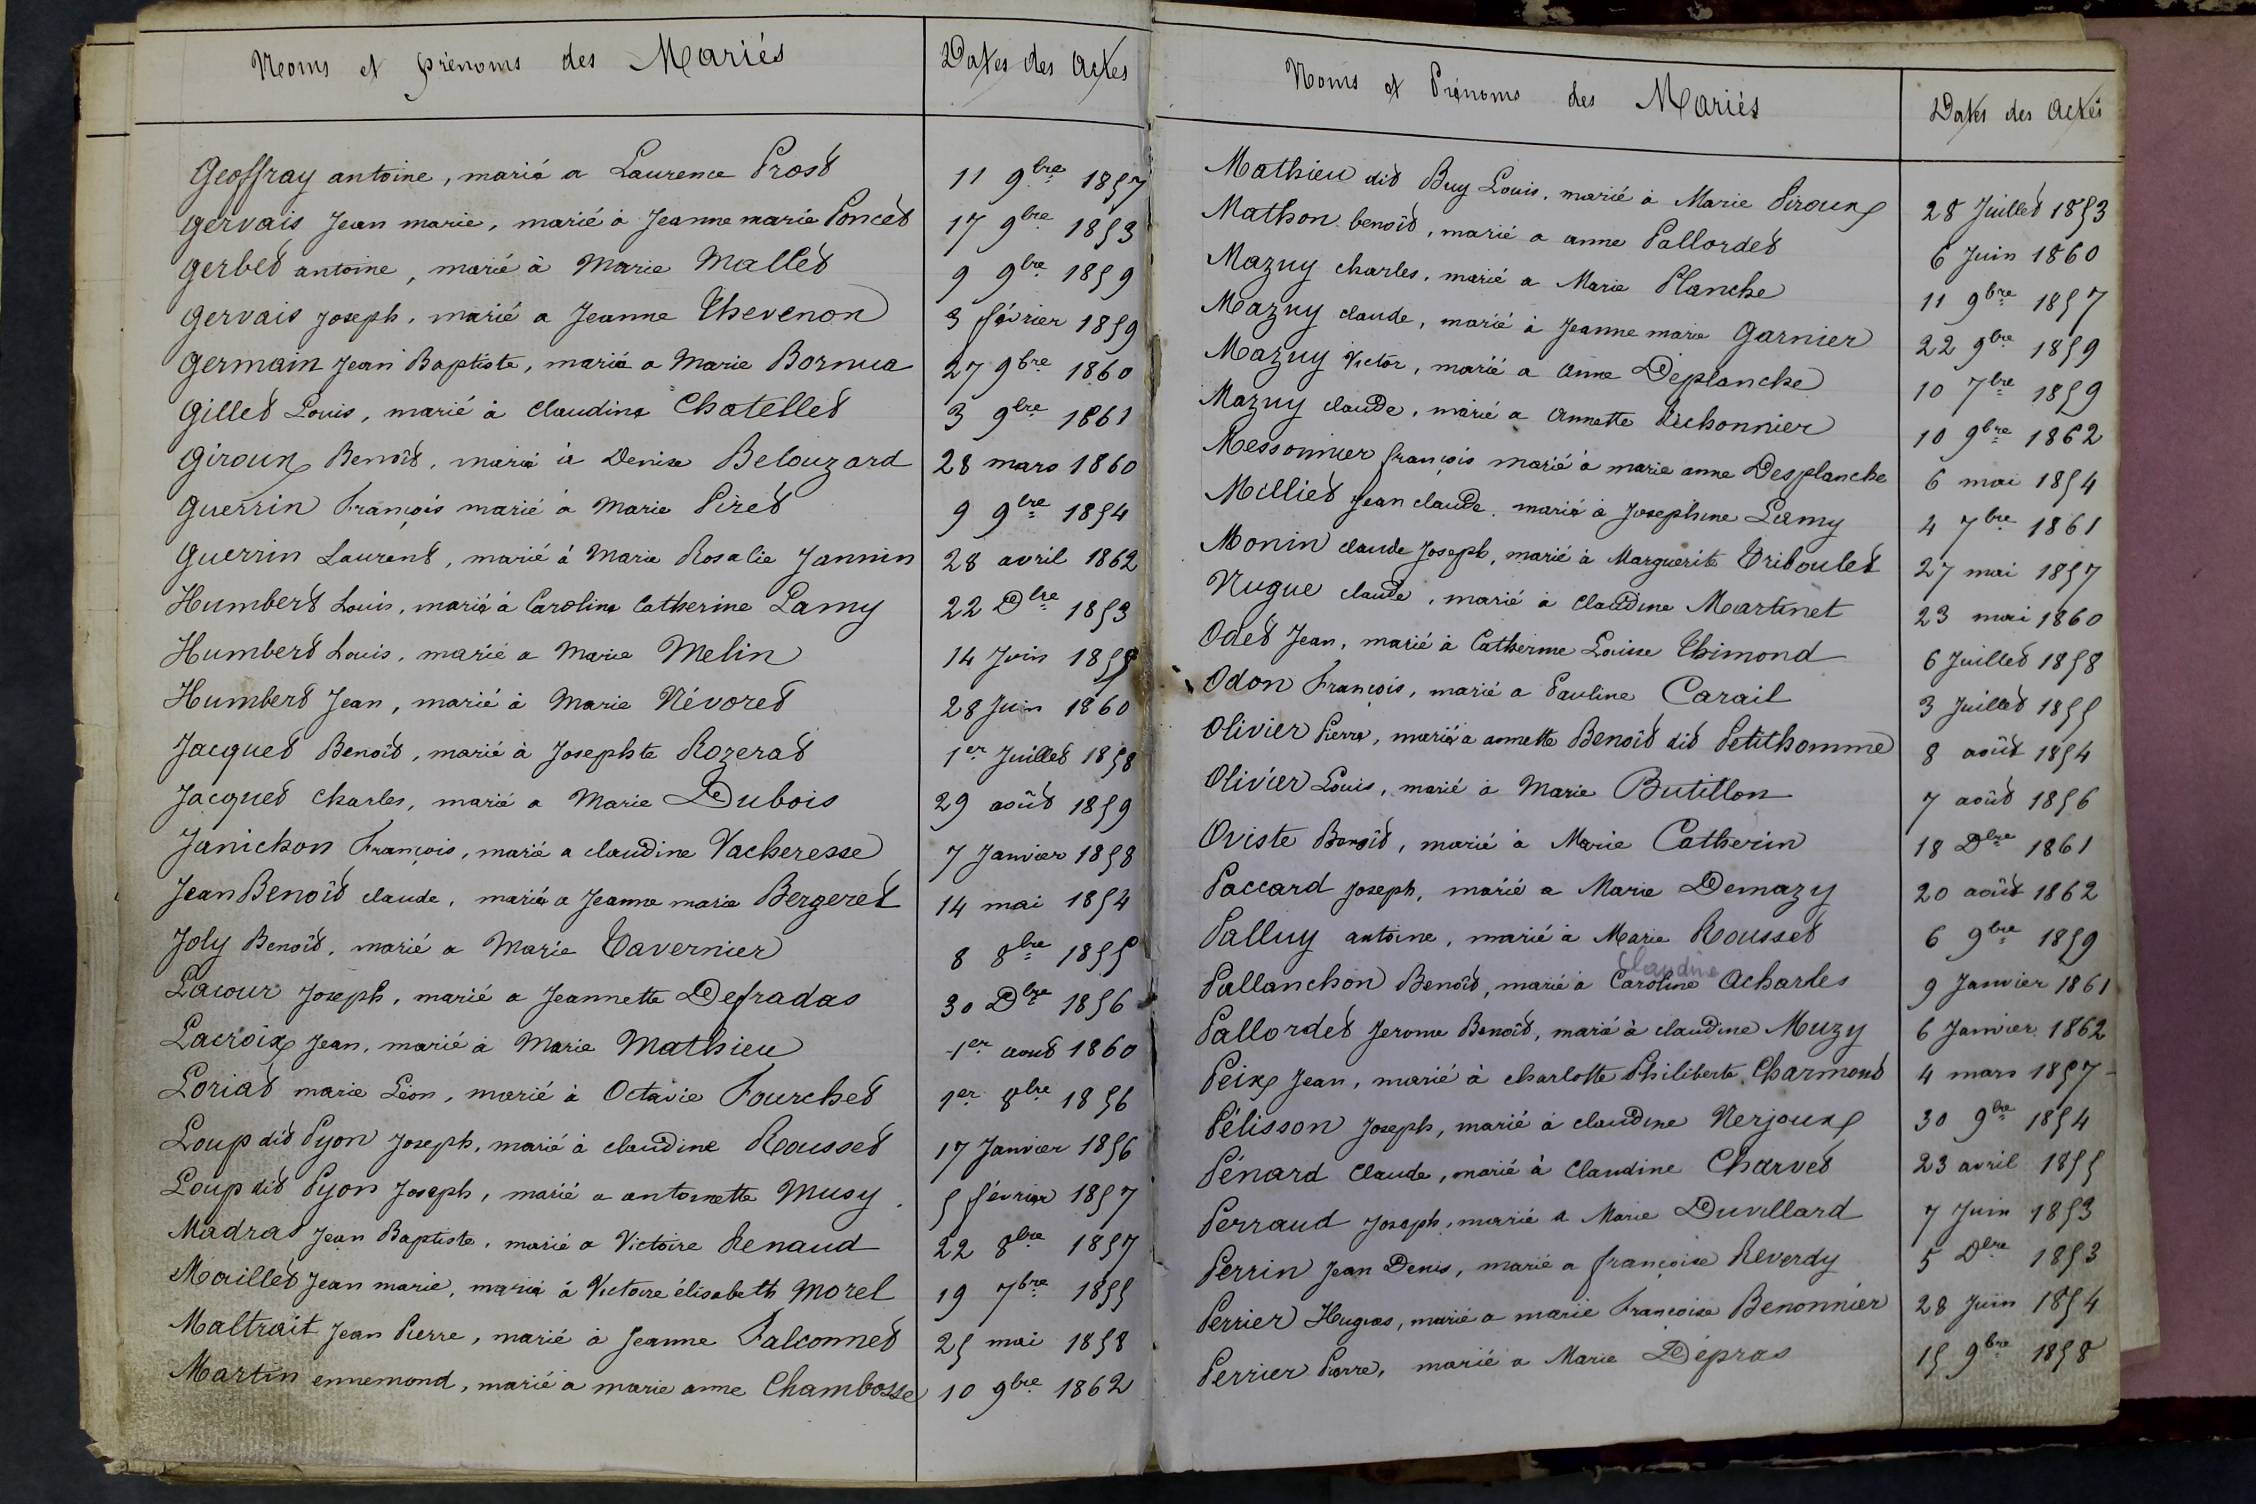 Noms et prénoms des Mariés
Dates des Actes
Geoffray antoine, marié a Laurence Prost
11 9bre 1857
Gervais Jean marie, marié à Jeanne marie Poncet
17 9bre 1853
Gerbet antoine, marié à Marie Mallet
9 9bre 1859
Gervais Joseph, marié a Jeanne Thevenon
3 février 1859
Germain Jean Baptiste, marié a Marie Bornua
27 9bre 1860
Gillet Louis, marié à Claudine Chatellet
3 9bre 1861
Giroux Benoît, marié à Denise Belouzard
28 mars 1860
Guerrin François marié à Marie Piret
9 9bre 1854
Guerrin Laurent, marié à Marie Rosalie Jannin
28 avril 1862
Humbert Louis, marié à Caroline Catherine Lamy
22 Dbre 1853
Humbert Louis, marié a Marie Melin
14 Juin 1858
Humbert Jean, marié à Marie Névoret
28 Juin 1860
Jacquet Benoît, marié à Josephte Rozerat
1er Juillet 1858
Jacquet Charles, marié a Marie Dubois
29 août 1859
Janichon François, marié a claudine Vacheresse
7 Janvier 1858
Jean Benoît claude, marié a Jeanne marie Bergeret
14 mai 1854
Joly Benoît, marié a Marie Tavernier
8 8bre 1855
Lacour Joseph, marié a Jeannette Defradas
30 Dbre 1856
Lacroix Jean, marié à Marie Mathieu
1er aout 1860
Loriat marie Léon, marié à Octavie Fourchet
1er 8bre 1856
Loup dit Pyon Joseph, marié à claudine Rousset
17 Janvier 1856
Loup dit Pyon Joseph, marié a antoinette Musy
5 février 1857
Madras Jean Baptiste, marié a Victoire Renaud
22 8bre 1857
Maillet Jean marie, marié à Victoire élisabeth Morel
19 7bre 1855
Maltrait Jean Pierre, marié à Jeanne Falconnet
25 mai 1858
Martin ennemond, marié a marie anne Chambosse
10 9bre 1862
Noms et Prénoms des Mariés
Dates des Actes
Mathieu dit Buy Louis, marié à Marie Piroux
28 Juillet 1853
Mathon benoît, marié a anne Pallordet
6 Juin 1860
Mazuy charles, marié a Marie Planche
11 9bre 1857
Mazuy claude, marié à Jeanne marie Garnier
22 9bre 1859
Mazuy Victor, marié a Anne Déplanche
10 7bre 1859
Mazuy claude, marié a Annette Bichonnier
10 9bre 1862
Messonnier françois marié à marie anne Desplanche
6 mai 1854
Milliet Jean claude, marié à Josephine Lamy
4 7bre 1861
Monin claude Joseph, marié à Marguerite Triboulet
27 mai 1857
Nugue claude, marié à Claudine Martinet
23 mai 1860
Odet Jean, marié à Catherine Louise Thimond
6 Juillet 1858
Odon François, marié a Pauline Carail
3 Juillet 1855
Olivier Pierre, marié a annette Benoît dit Petithomme
8 août 1854
Olivier Louis, marié à Marie Butillon
7 août 1856
Oviste Benoît, marié à Marie Catherin
18 Dbre 1861
Paccard Joseph, marié a Marie Demazy
20 août 1862
Palluy antoine, marié à Marie Rousset
6 9bre 1859
Claudine
Pallanchon Benoît, marié à Caroline Acharles
9 Janvier 1861
Pallordet Jerome Benoît, marié à claudine Muzy
6 Janvier 1862
Peix Jean, marié à charlotte Philiberte Charmont
4 mars 1857
Pélisson Joseph, marié à claudine Nerjoux
30 9bre 1854
Pénard Claude, marié à Claudine Charvet
23 avril 1855
Perraud Joseph, marié a Marie Duvillard
7 Juin 1853
Perrin Jean Denis, marié a françoise Reverdy
5 Dbre 1853
Perrier Hugues, marié a marie Françoise Benonnier
28 Juin 1854
Perrier Pierre, marié a Marie Dépras
15 9bre 1858